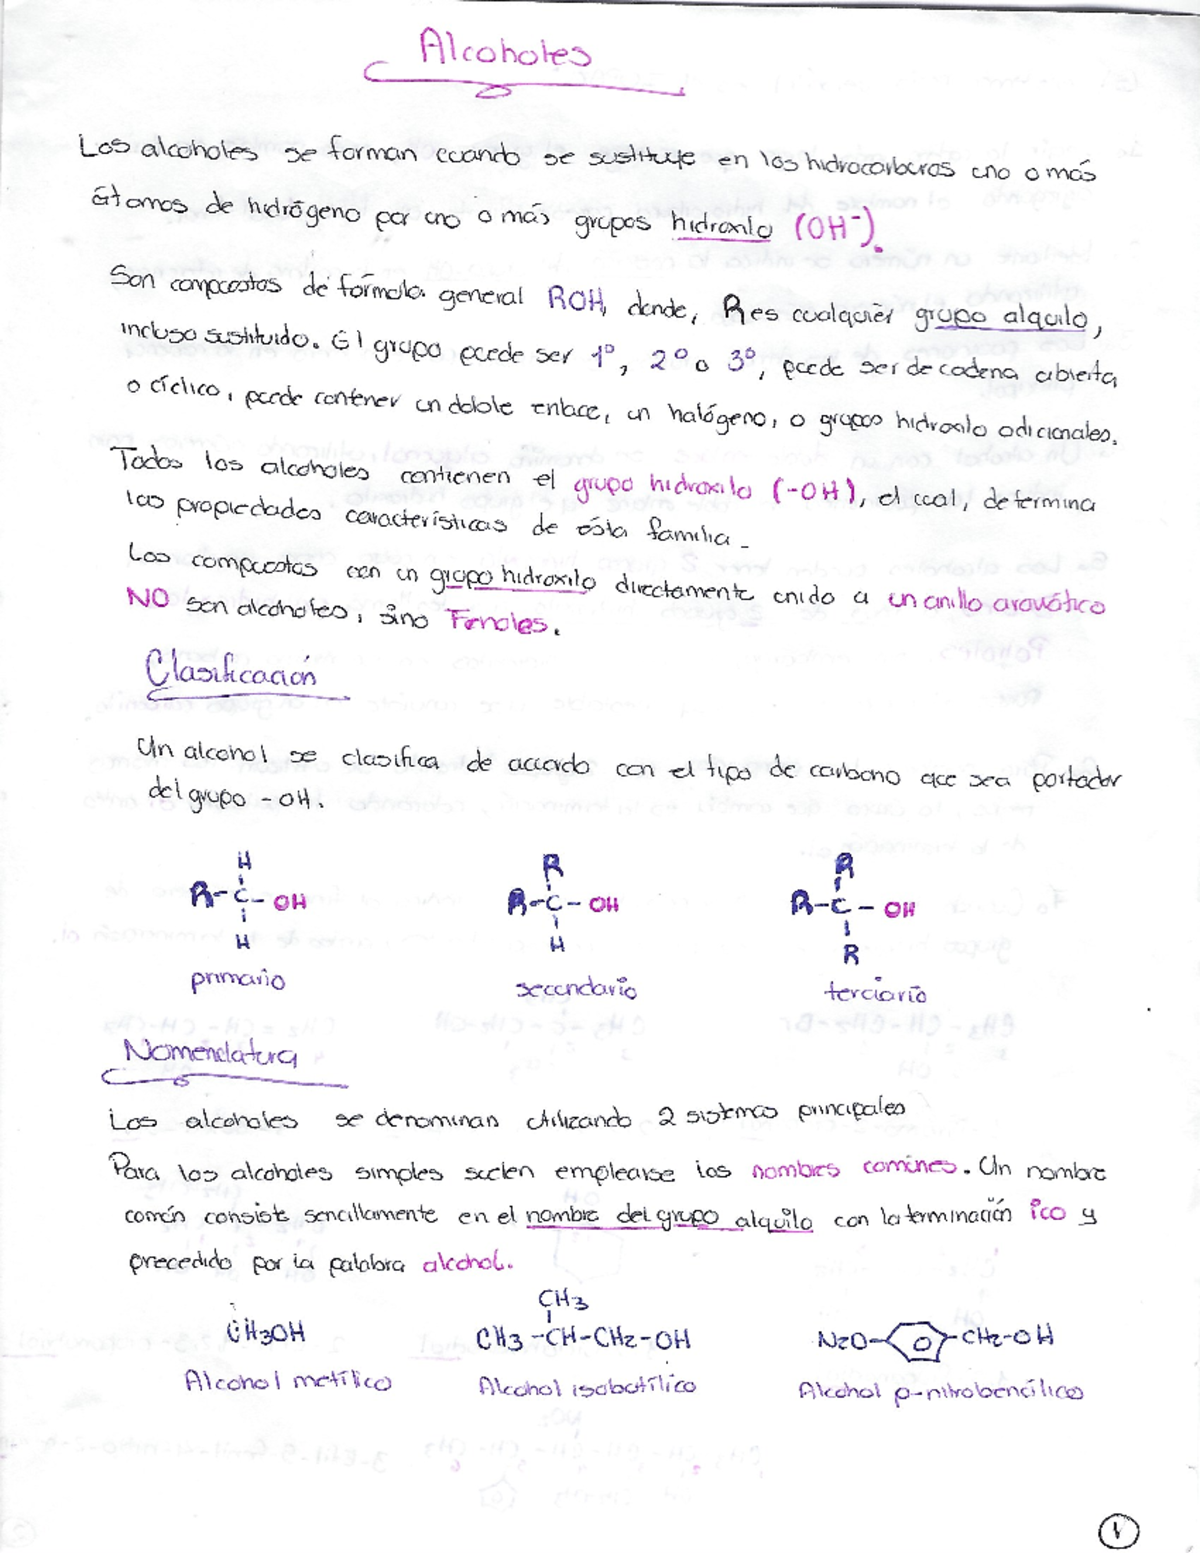 Alcoholes
Los alcoholes se forman cuando se sustituye en los hidrocarburos uno o más
átomos de hidrógeno por uno o más grupos hidroxilo (OH⁻).
Son compuestos de fórmula general ROH, donde, R es cualquier grupo alquilo,
incluso sustituido. El grupo puede ser 1°, 2° o 3°, puede ser de cadena abierta
o cíclico, puede contener un doble enlace, un halógeno, o grupos hidroxilo adicionales.
Todos los alcoholes contienen el grupo hidroxilo (-OH), el cual, determina
las propiedades características de ésta familia.
Los compuestos con un grupo hidroxilo directamente unido a un anillo aromático
NO son alcoholes, sino Fenoles.
Clasificación
Un alcohol se clasifica de acuerdo con el tipo de carbono que sea portador
del grupo -OH.
H R R
R-C-OH R-C-OH R-C-OH
H H R
primario secundario terciario
Nomenclatura
Los alcoholes se denominan utilizando 2 sistemas principales
Para los alcoholes simples suelen emplearse los nombres comunes. Un nombre
común consiste sencillamente en el nombre del grupo alquilo con la terminación ico y
precedido por la palabra alcohol.
CH3
CH3OH CH3-CH-CH2-OH N2O- -CH2-OH
Alcohol metílico Alcohol isobutílico Alcohol p-nitrobencílico
1